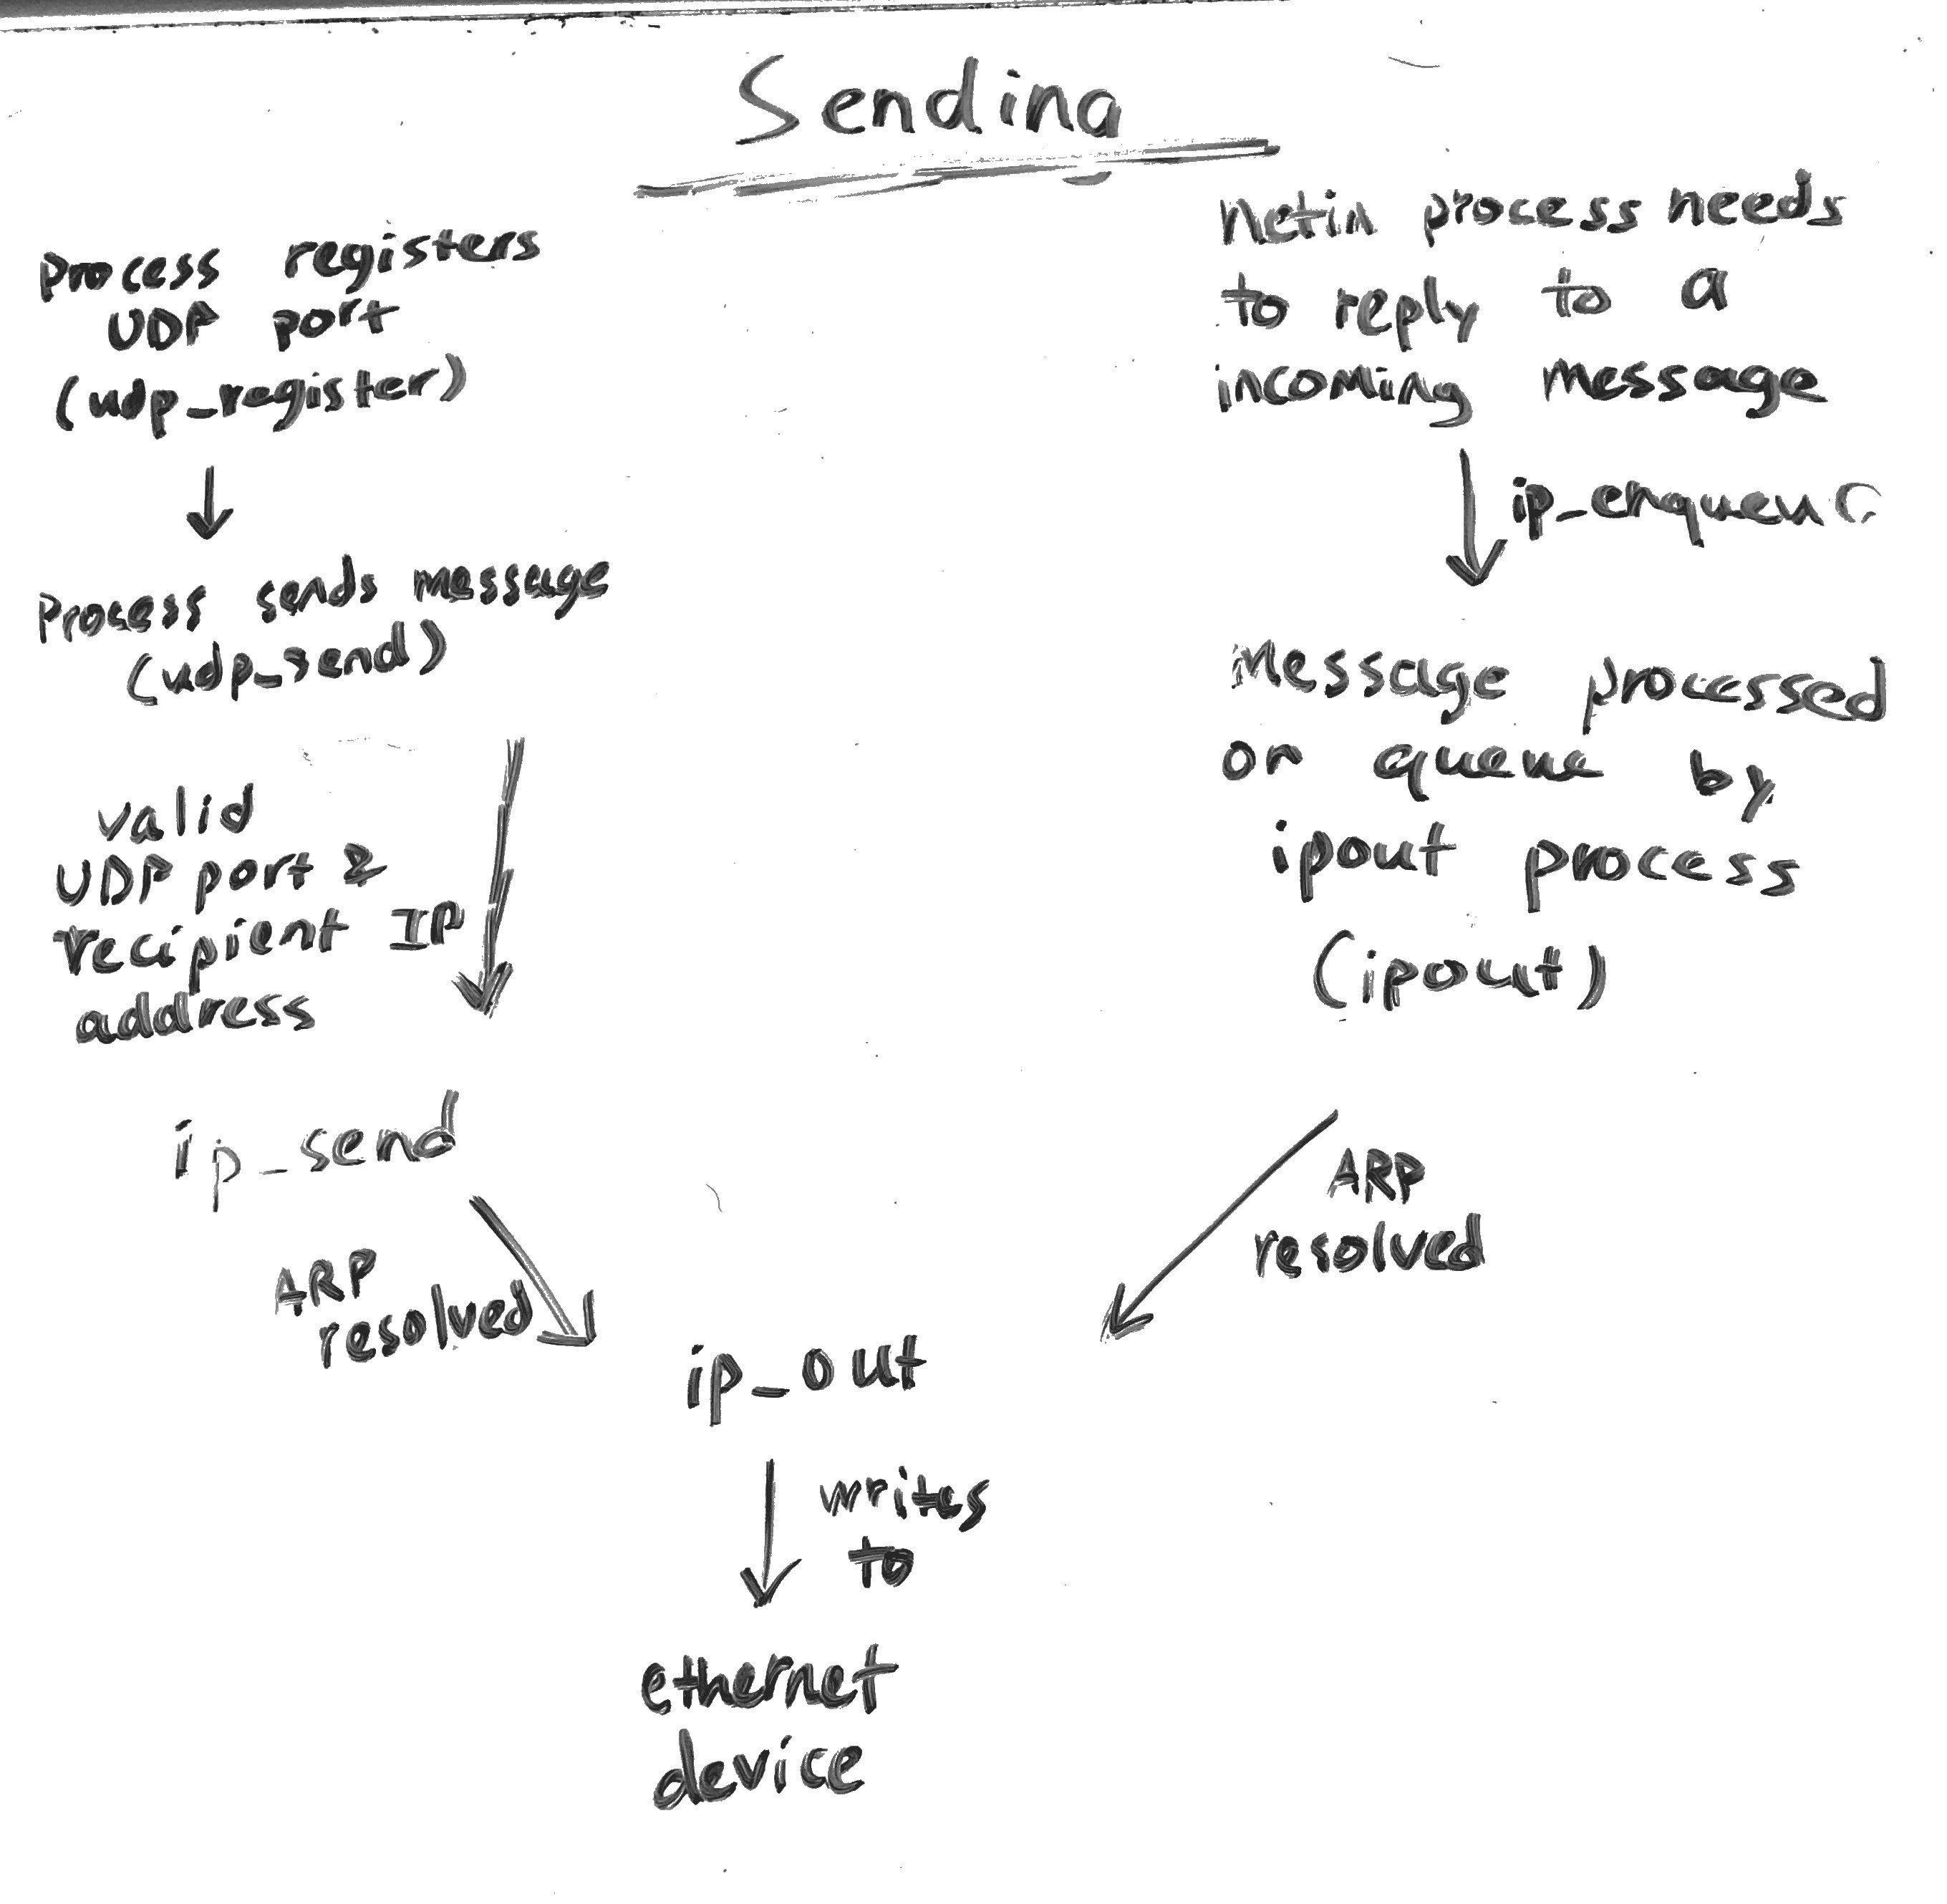 Sending
process registers
UDP port
(udp_register)
process sends message
(udp_send)
valid
UDP port &
recipient IP
address
ip_send
ARP
resolved
netin process needs
to reply to a
incoming message
ip_enqueue
message processed
on queue by
ipout process
(ipout)
ARP
resolved
ip_out
writes
to
ethernet
device